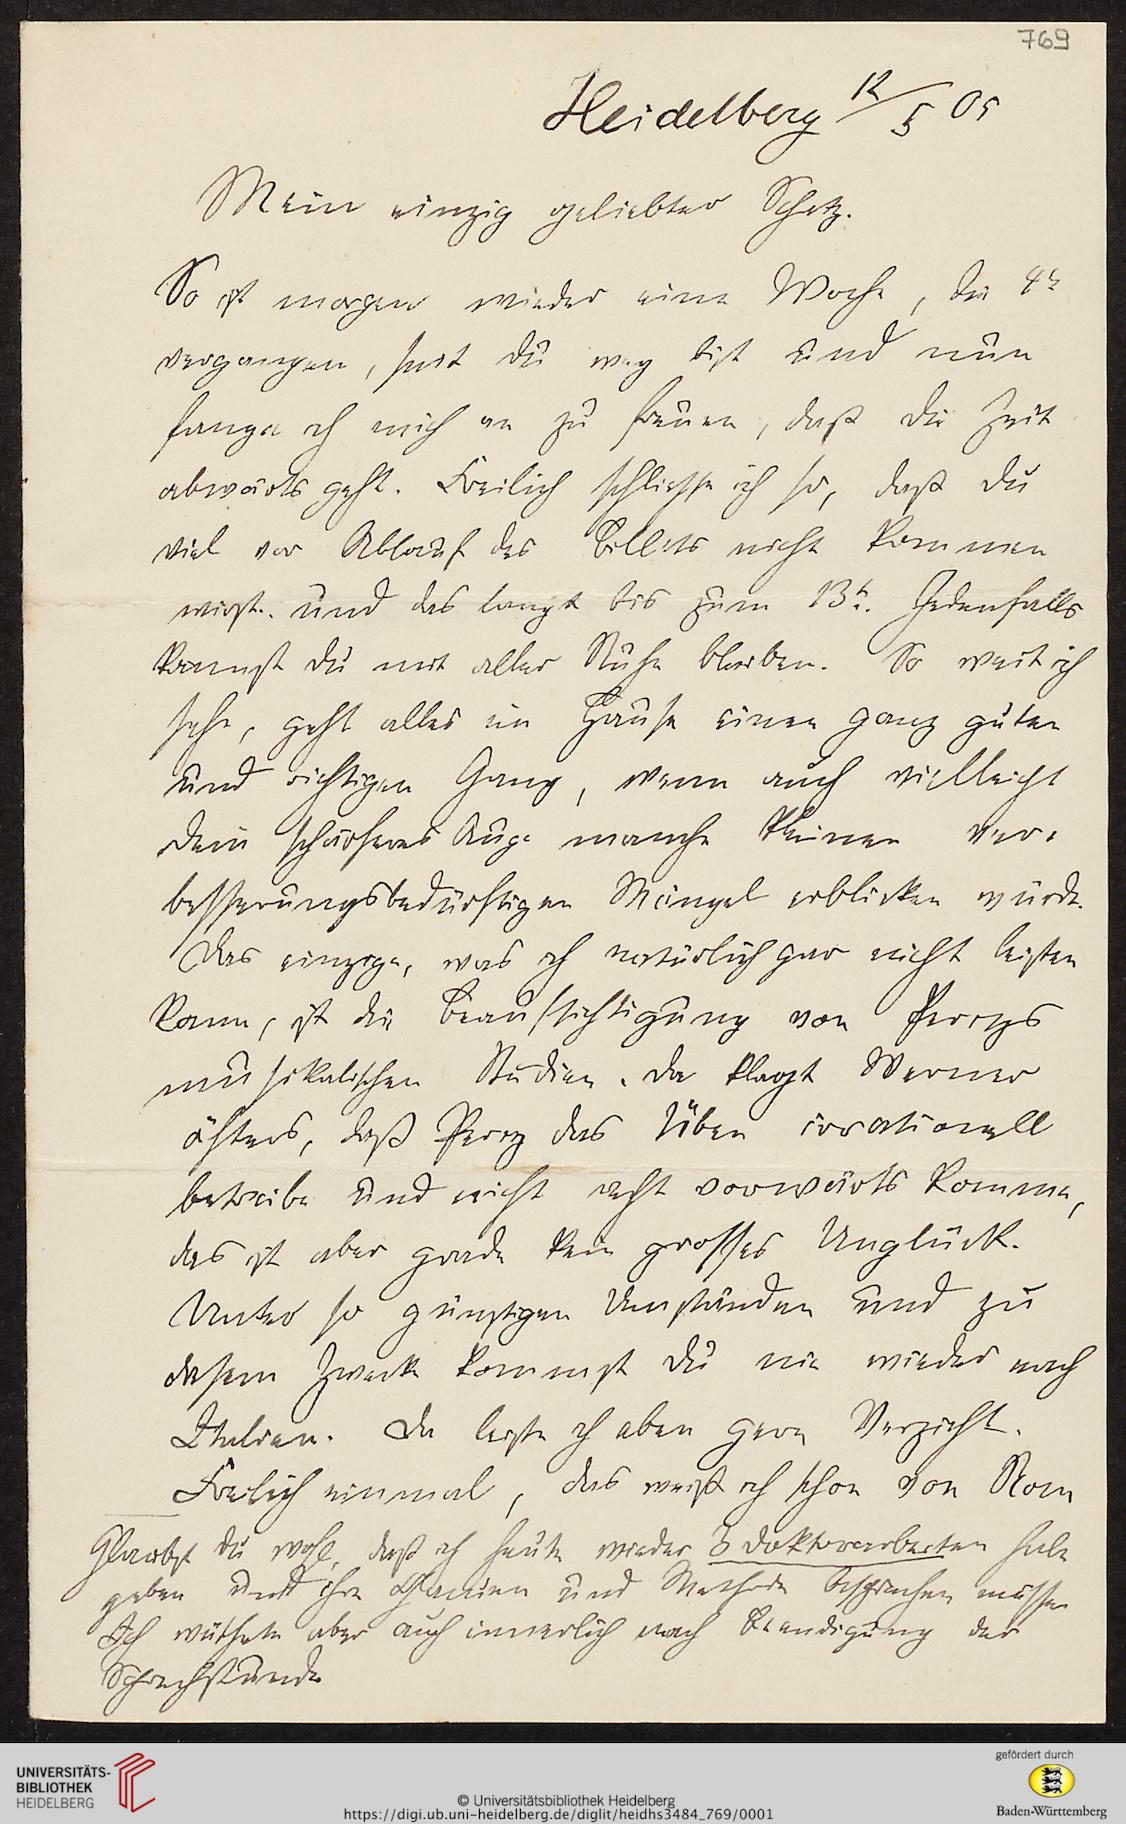 769
Heidelberg 12/5 05
Mein einzig geliebter Schatz.
So ist morgen wieder eine Woche, die 4te
vergangen, seit Du weg bist und nun
fange ich mich an zu freuen, daß die Zeit
abwärts geht. Freilich schliesse ich so, daß Du
viel vor Ablauf des Billets nicht kommen
wirst. und das langt bis zum 13t. Jedenfalls
kannst Du mit aller Ruhe bleiben. So weit ich
sehe, geht alles im Hause einen ganz guten
und richtigen Gang, wenn auch vielleicht
Dein schärferes Auge manche kleinen ver-
besserungsbedürftigen Mängel erblicken würde.
Das einzige, was ich natürlich gar nicht leisten
kann, ist die Beaufsichtigung von Percys
musikalischen Studien. Da klagt Werner
öfters, daß Percy das Üben irrationell
betreibe und nicht recht vorwärts komme,
das ist aber grade kein grosses Unglück.
Unter so günstigen Umständen und zu
diesem Zwecke kommst Du nie wieder nach
Italien. Da leiste ich eben gern Verzicht.
Freilich einmal, das weiß ich schon von Rom
Glaubst Du wohl, daß ich heute wieder 3 Doktorarbeiten habe
geben und ihre und Methode besprechen müssen
Ich wüthete aber auch innerlich nach Beendigung der
Sprechstunde
UNIVERSITÄTS-
BIBLIOTHEK
HEIDELBERG
© Universitätsbibliothek Heidelberg
https://digi.ub.uni-heidelberg.de/diglit/heidhs3484_769/0001
gefördert durch
Baden-Württemberg